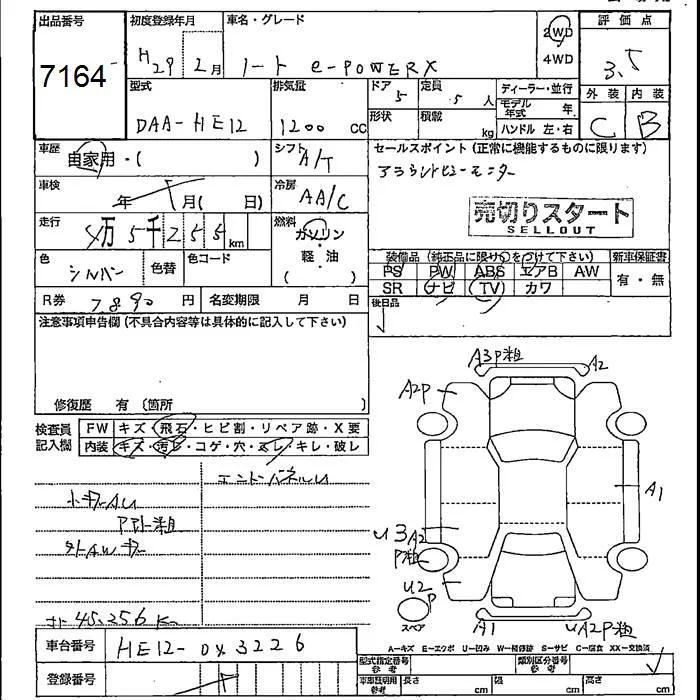 出品番号 初度登録年月 車名・グレード 評価点
7164 H29 2月 ノート e-POWER X 2WD 4WD 3.5
型式 排気量 ドア 5 定員 5人 ディーラー・並行 外装 内装
DAA-HE12 1200 cc 形状 積載 kg モデル年式 年 C B
ハンドル 左・右
車歴 自家用・( ) シフト A/T セールスポイント (正常に機能するものに限ります)
アラウンドビューモニター
車検 年 月( 日) 冷房 AA/C
売切りスタート
SELLOUT
走行 4万5千255km 燃料 ガソリン・軽・油 ( )
装備品 (純正品に限り○をつけて下さい) 新車保証書
色 シルバー 色替 色コード
PS PW ABS エアB AW 有・無
SR ナビ TV カワ
R券 7890円 名変期限 月 日 後日品
注意事項申告欄 (不具合内容等は具体的に記入して下さい)
修復歴 有 〔箇所 〕
検査員記入欄 FW キズ・飛石・ヒビ割・リペア跡・X要
内装 キズ・汚レ・コゲ・穴・スレ・キレ・破レ
A3 P粗 A2
A2P
A1
U3 A2
P粗
U2
P
スペア
A1 UA2P粗
P粗
45,256K
A-キズ E-エクボ U-凹み W-補修跡 S-サビ C-腐食 XX-交換済
車台番号 HE12-043226
型式指定番号 参考 類別区分番号 参考
登録番号
車庫証明用 参考 長さ cm 幅 cm 高さ cm